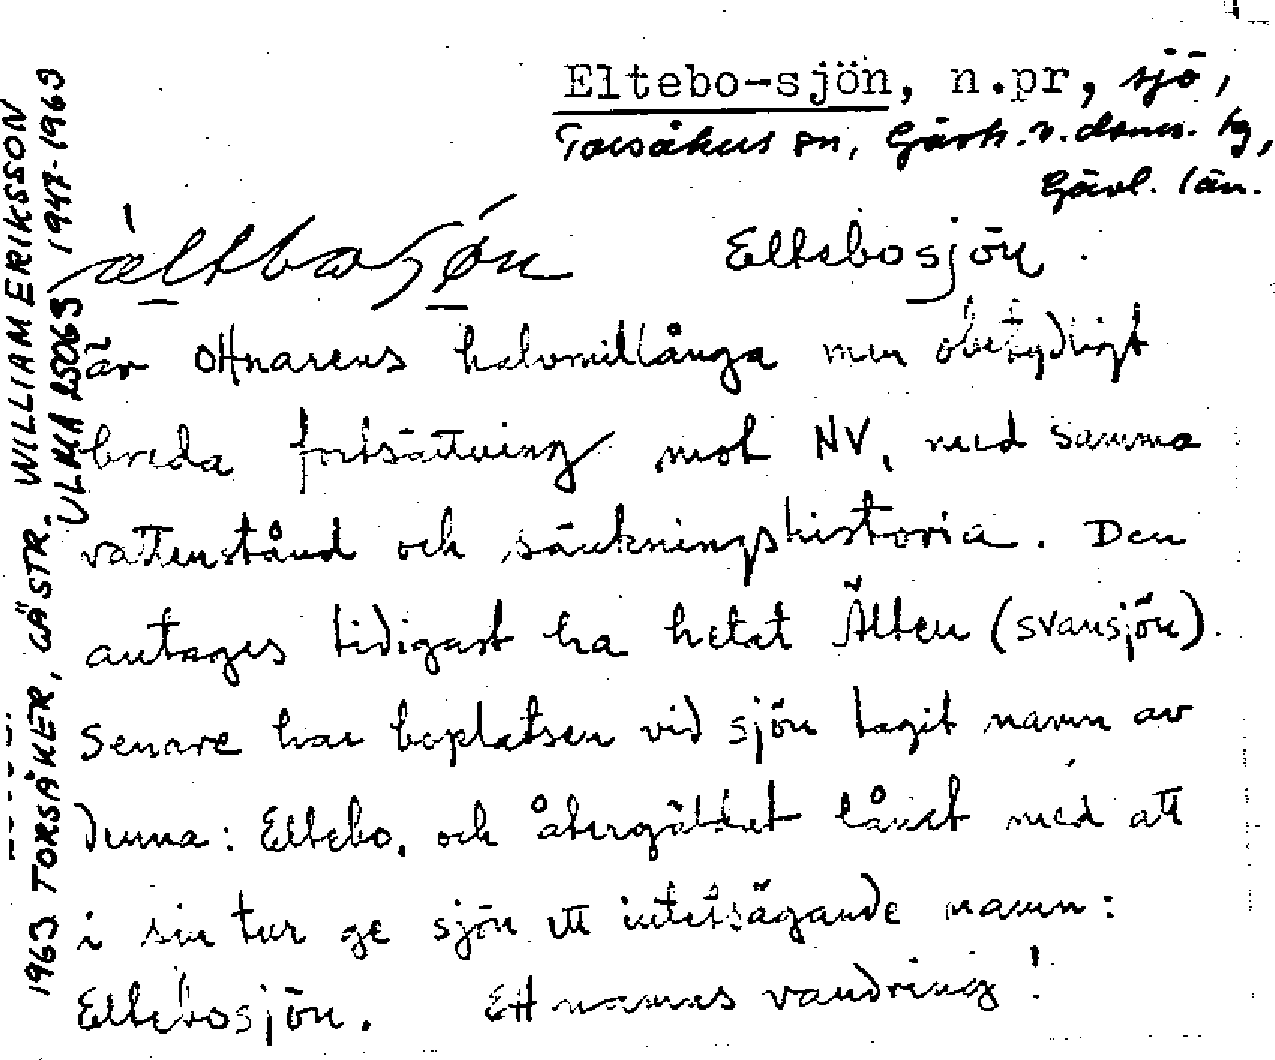 Eltebo-sjön, n.pr, sjö,
Torsåkers sn, Gästr. v. doms. tg,
Gävl. län.
Eltebosjön.
är Ottnarens halvmillånga men obetydligt
breda fortsättning mot NV, med samma
vattenstånd och sänkningshistoria. Den
antages tidigast ha hetat Älten (svansjön).
Senare har boplatsen vid sjön tagit namn av
denna: Eltebo, och återgäldat lånet med att
i sin tur ge sjön ett intetsägande namn:
Eltebosjön. Ett namns vandring!
1963 TORSÅKER, GÄSTR. WILLIAM ERIKSSON
ULMA 25069 1947-1963